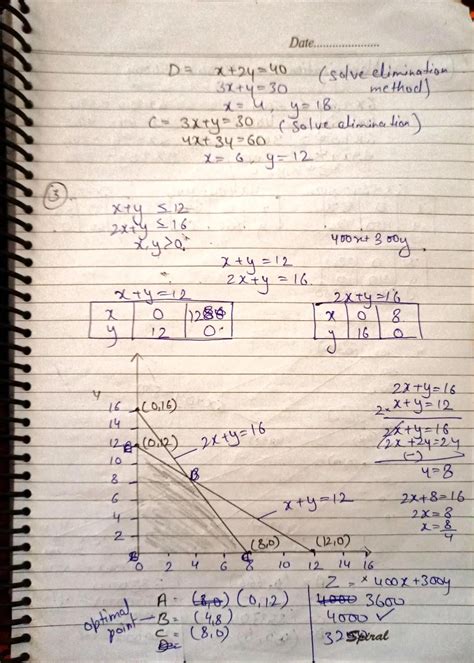 Date....................
D = x+2y=40 (solve elimination
3x+y=30 method)
x=4, y=18.
C = 3x+y=30 (solve elimination)
4x+3y=60
x= 6, y=12
3
x+y ≤12
2x+y ≤16
x,y>0.
400x+300y
x+y=12
2x+y=16.
x+y=12
x 0 12
y 12 0.
2x+y=16
x 0 8
y 16 0
2x+y=16
2. x+y=12
2x+y=16
2x+2y=24
(-)
y=8
2x+8=16
2x=8
x=8/4
Y
16
14
12
10
8
6
4
2
(0,16)
(0,12)
2x+y=16
B
x+y=12
(8,0)
C
(12,0)
0 2 4 6 8 10 12 14 16
Z = 400x+300y
A = (8,0) (0,12) 4000 3600
optimal point B= (4,8) 4000 ✓
C = (8,0)
D=
Spiral